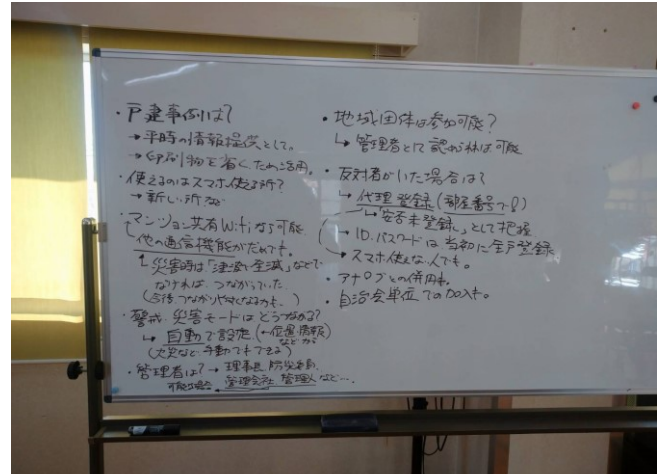 ・戸建事例は?
→平時の情報提供として。
→印刷物を省くため活用。
・使えるのはスマホ使える所?
→新しい所など
・マンション共有Wifiなら可能
他の通信機能がだめでも。
↳災害時は「津波で全滅」などで
なければ、つながっていた
(今後つながりやすくなるかも。)
・警戒・災害モードはどうつながる?
↳自動で設定(←位置情報などから)
(火災など手動でもできる)
・管理者は?→理事長、防災委員、
可能な場合 管理会社 管理人など…
・地域団体は参加可能?
↳管理者として認めれば可能
・反対者がいた場合は?
↳代理登録(部屋番号で)
↳「安否未登録」として把握
→ID.パスワードは当初に全戸登録
→スマホ使えない人でも。
・アナログとの併用も。
・自治会単位での加入も。